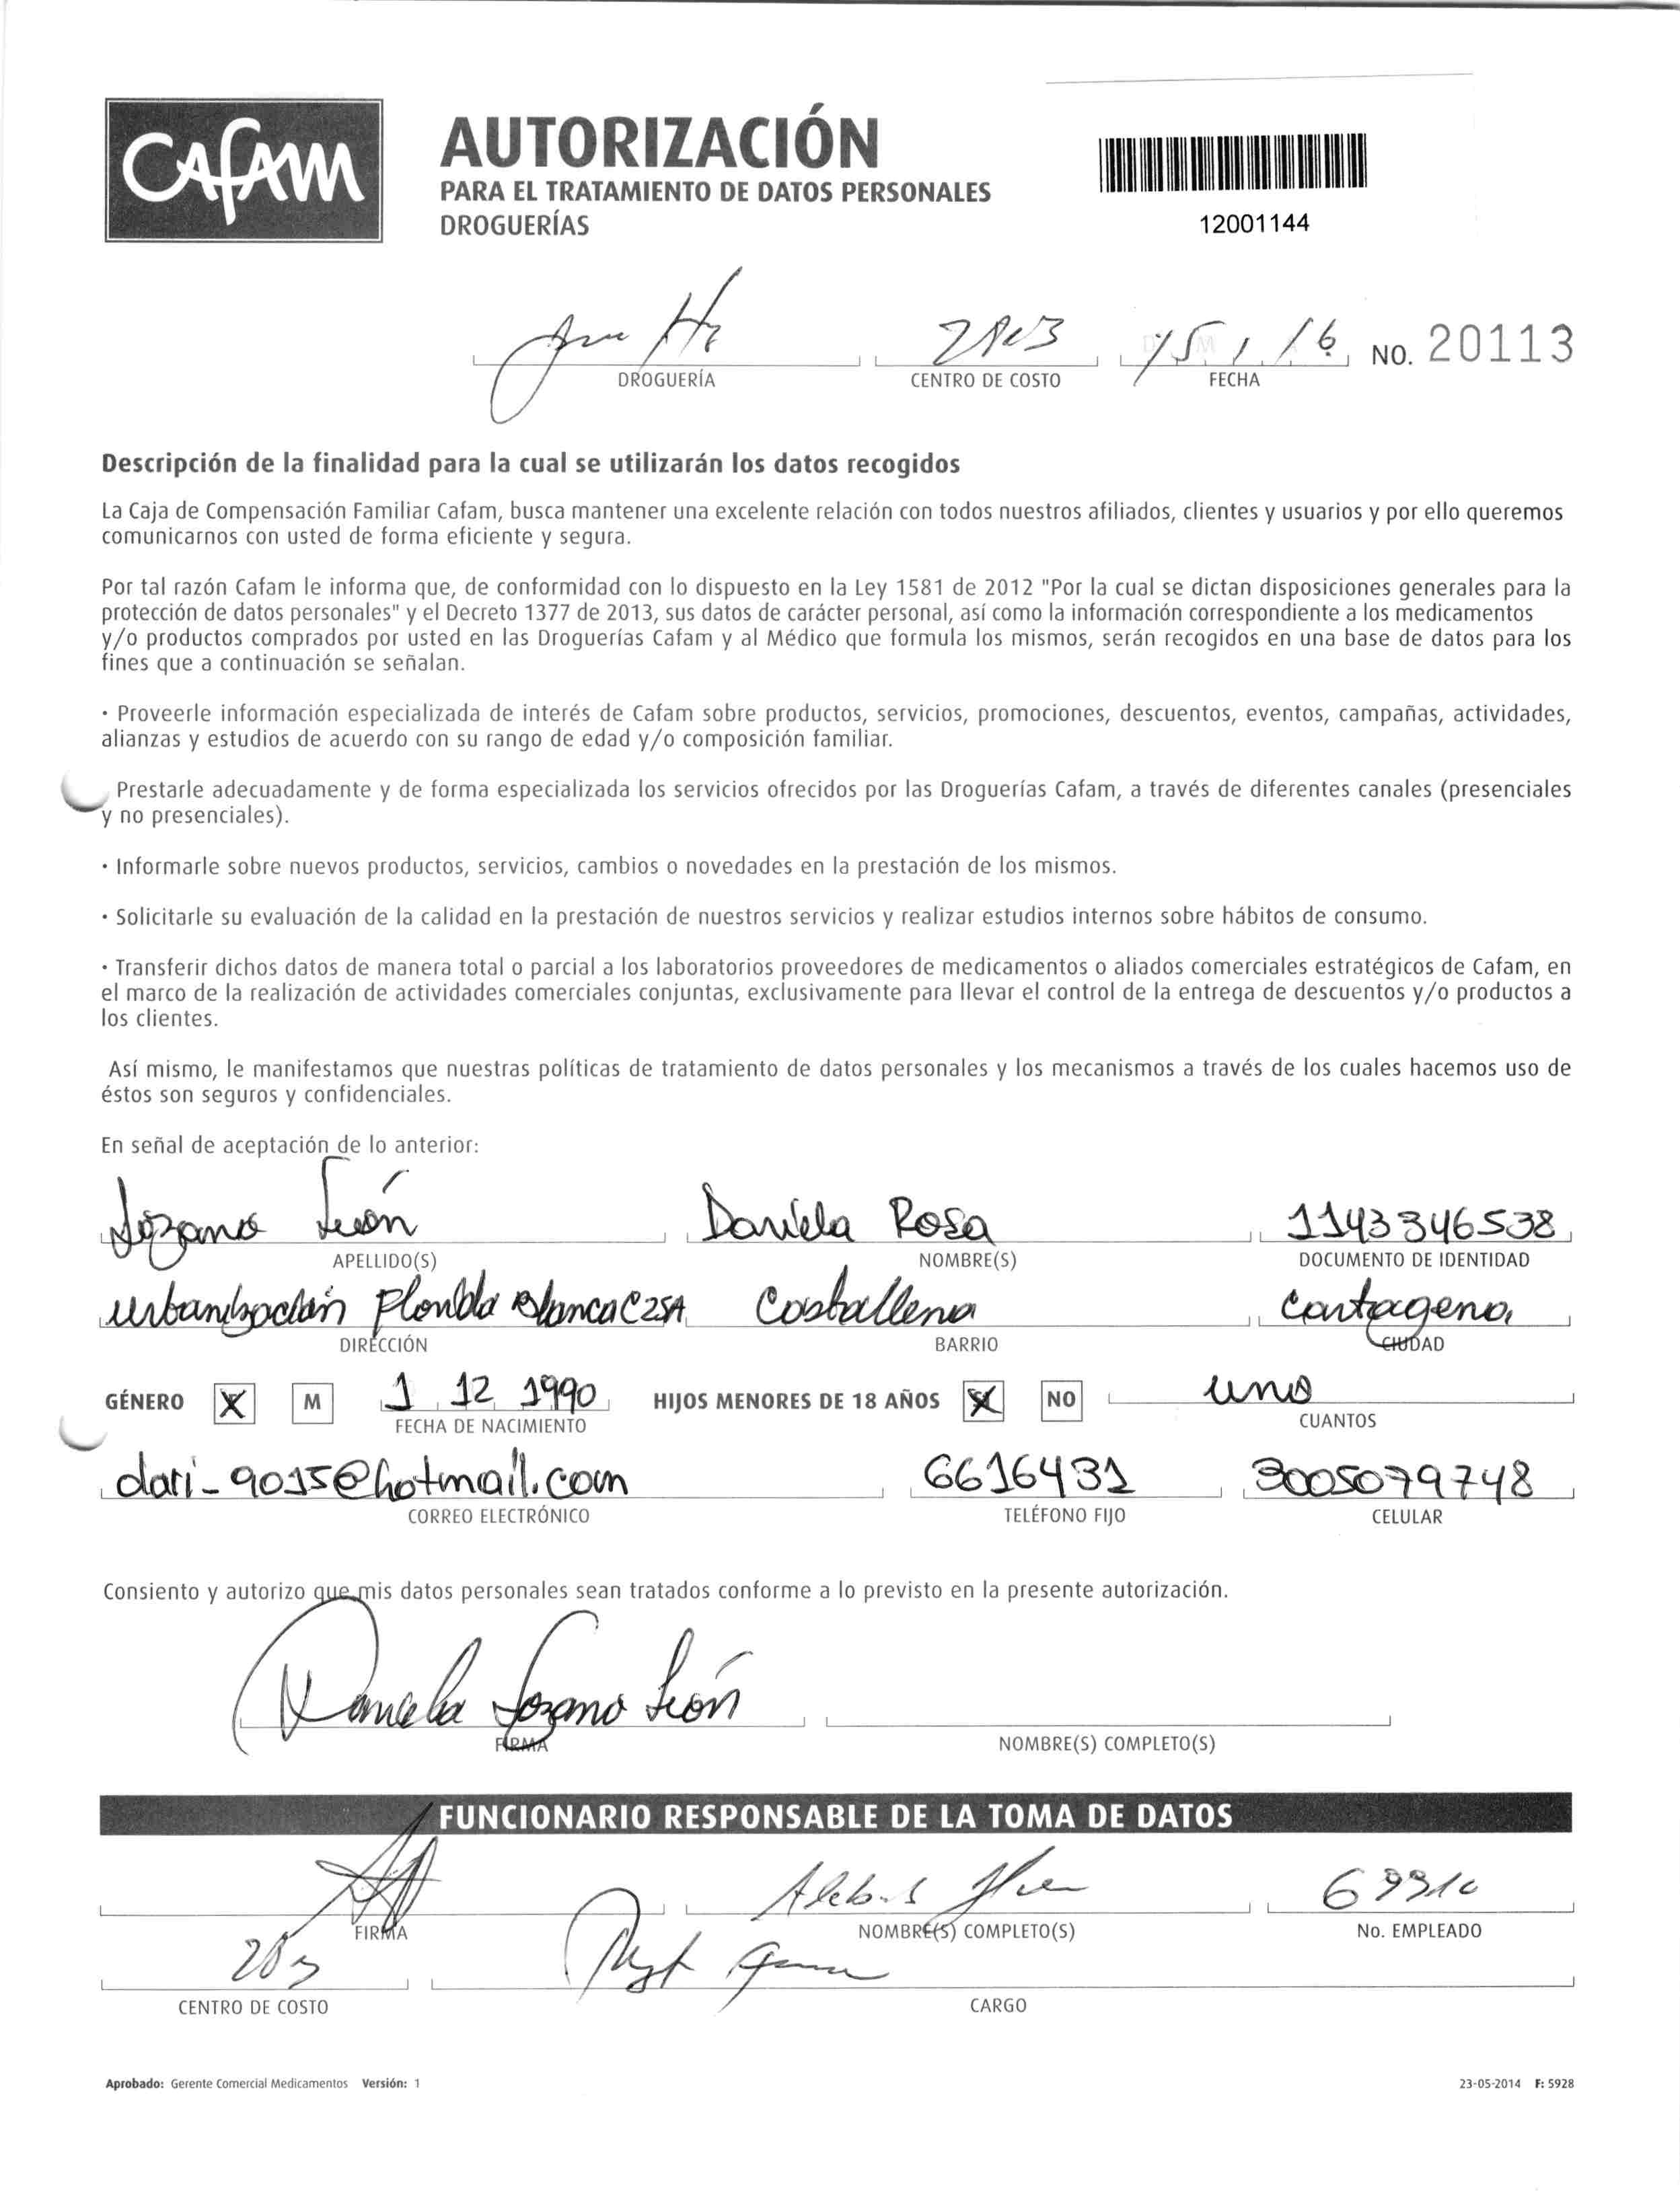 Cafam
AUTORIZACIÓN
PARA EL TRATAMIENTO DE DATOS PERSONALES
DROGUERÍAS
12001144
15 1 16 NO. 20113
DROGUERÍA CENTRO DE COSTO FECHA
Descripción de la finalidad para la cual se utilizarán los datos recogidos
La Caja de Compensación Familiar Cafam, busca mantener una excelente relación con todos nuestros afiliados, clientes y usuarios y por ello queremos
comunicarnos con usted de forma eficiente y segura.
Por tal razón Cafam le informa que, de conformidad con lo dispuesto en la Ley 1581 de 2012 "Por la cual se dictan disposiciones generales para la
protección de datos personales" y el Decreto 1377 de 2013, sus datos de carácter personal, así como la información correspondiente a los medicamentos
y/o productos comprados por usted en las Droguerías Cafam y al Médico que formula los mismos, serán recogidos en una base de datos para los
fines que a continuación se señalan.
· Proveerle información especializada de interés de Cafam sobre productos, servicios, promociones, descuentos, eventos, campañas, actividades,
alianzas y estudios de acuerdo con su rango de edad y/o composición familiar.
Prestarle adecuadamente y de forma especializada los servicios ofrecidos por las Droguerías Cafam, a través de diferentes canales (presenciales
y no presenciales).
· Informarle sobre nuevos productos, servicios, cambios o novedades en la prestación de los mismos.
· Solicitarle su evaluación de la calidad en la prestación de nuestros servicios y realizar estudios internos sobre hábitos de consumo.
· Transferir dichos datos de manera total o parcial a los laboratorios proveedores de medicamentos o aliados comerciales estratégicos de Cafam, en
el marco de la realización de actividades comerciales conjuntas, exclusivamente para llevar el control de la entrega de descuentos y/o productos a
los clientes.
Así mismo, le manifestamos que nuestras políticas de tratamiento de datos personales y los mecanismos a través de los cuales hacemos uso de
éstos son seguros y confidenciales.
En señal de aceptación de lo anterior:
Lozano León Daniela Rosa 1143346538
APELLIDO(S) NOMBRE(S) DOCUMENTO DE IDENTIDAD
urbanización Florida Blanca C25A Costallena Cartagena
DIRECCIÓN BARRIO CIUDAD
GÉNERO X M 1 12 1990 HIJOS MENORES DE 18 AÑOS X NO uno
FECHA DE NACIMIENTO CUANTOS
dari_9015@hotmail.com 6616431 3005079748
CORREO ELECTRÓNICO TELÉFONO FIJO CELULAR
Consiento y autorizo que mis datos personales sean tratados conforme a lo previsto en la presente autorización.
Daniela Lozano León
FIRMA NOMBRE(S) COMPLETO(S)
FUNCIONARIO RESPONSABLE DE LA TOMA DE DATOS
FIRMA NOMBRE(S) COMPLETO(S) No. EMPLEADO
CENTRO DE COSTO CARGO
Aprobado: Gerente Comercial Medicamentos Versión: 1 23-05-2014 F: 5928